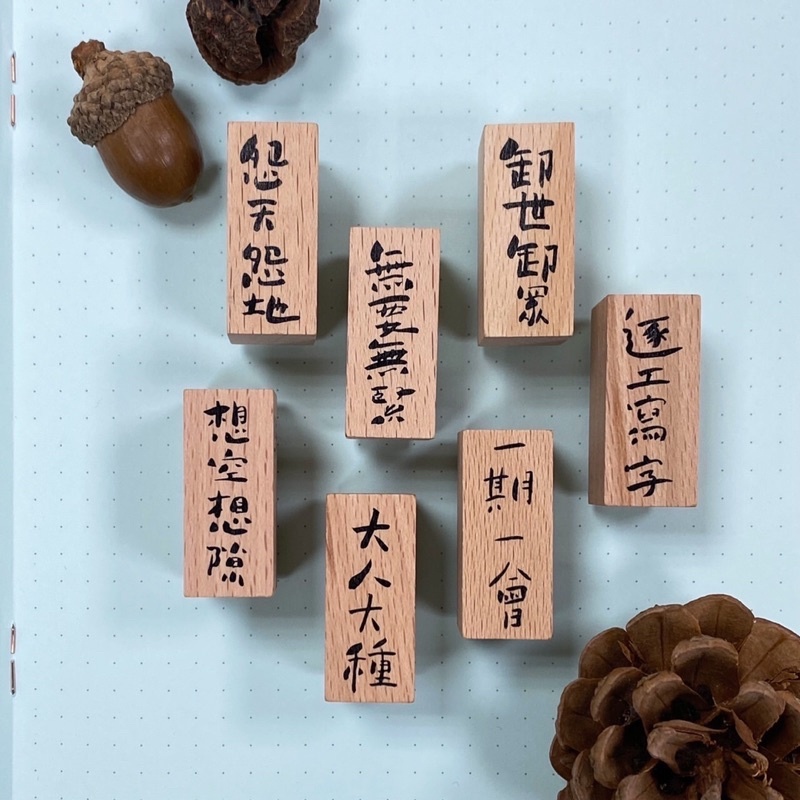 怨天怨地
無要無緊
卸世卸眾
逐工寫字
想空想隙
大人大種
一期一會